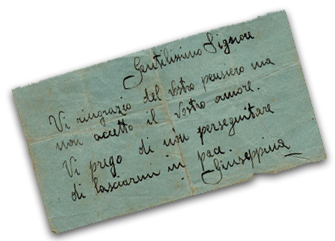 Gentilissimo Signore
Vi ringrazio del Vostro pensiero ma
non accetto il Vostro amore.
Vi prego di non perseguitare
di lasciarmi in pace.
Giuseppina